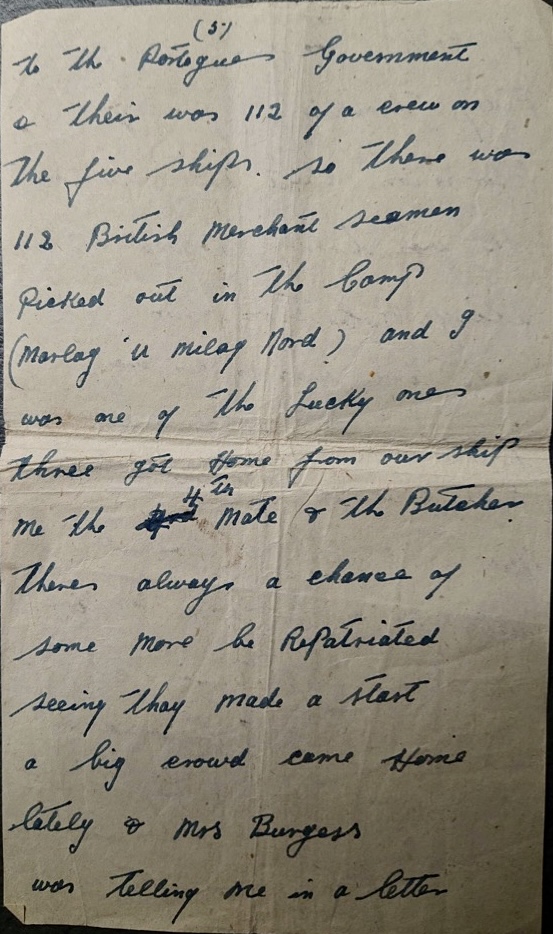 (5)
to the Portogues Government
& their was 112 of a crew on
the five ships. so there was
112 British Merchant seamen
Picked out in the Camp
(Marlag 'u Milag Nord) and I
was one of the Lucky ones
three got Home from our ship
me the 4th Mate & the Butcher
theres always a chance of
some more be RePatriated
seeing thay made a start
a big crowd came Home
lately & Mrs Burgess
was telling me in a letter